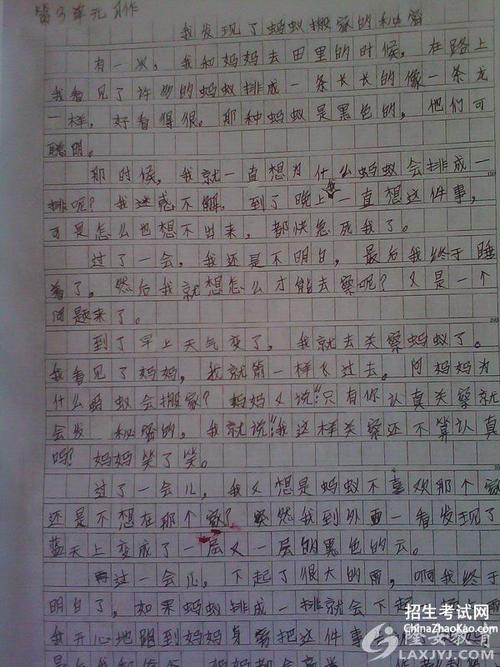 第3单元习作
我发现了蚂蚁搬家的秘密
有一次，我和妈妈去田里的时候，在路上
我看见了许多的蚂蚁排成一条长长的像一条龙
一样，好看得很。那种蚂蚁是黑色的，他们可
聪明。
那时候，我就一直想为什么蚂蚁会排成一
排呢？我迷惑不解，到了晚上我一直想这件事，
可是怎么也想不出来，都快急死我了。
过了一会，我还是不明白，最后我终于睡
着了，然后我就想怎么才能去察呢？又是一个
问题来了。
到了早上天气变了，我就去关察蚂蚁了。
我看见了妈妈，我就箭一样飞过去。问妈妈为
什么蚂蚁会搬家？妈妈又说“只有你认真关察就
会发 秘密的，我就说“我这样关察还不算认真
吗？妈妈笑了笑。
过了一会儿，我又想是蚂蚁不喜欢那个家
还是不想在那个家？突然我到外面一看发现了
蓝天上变成了一层又一层的黑色的云。
再过一会儿，下起了很大的雨，啊我终于
明白了，如果蚂蚁排成一排就会下起
我开心地跑到妈妈身旁把这件事
招生考试网
ChinaZhaoKao.com
LAXJYJ.COM